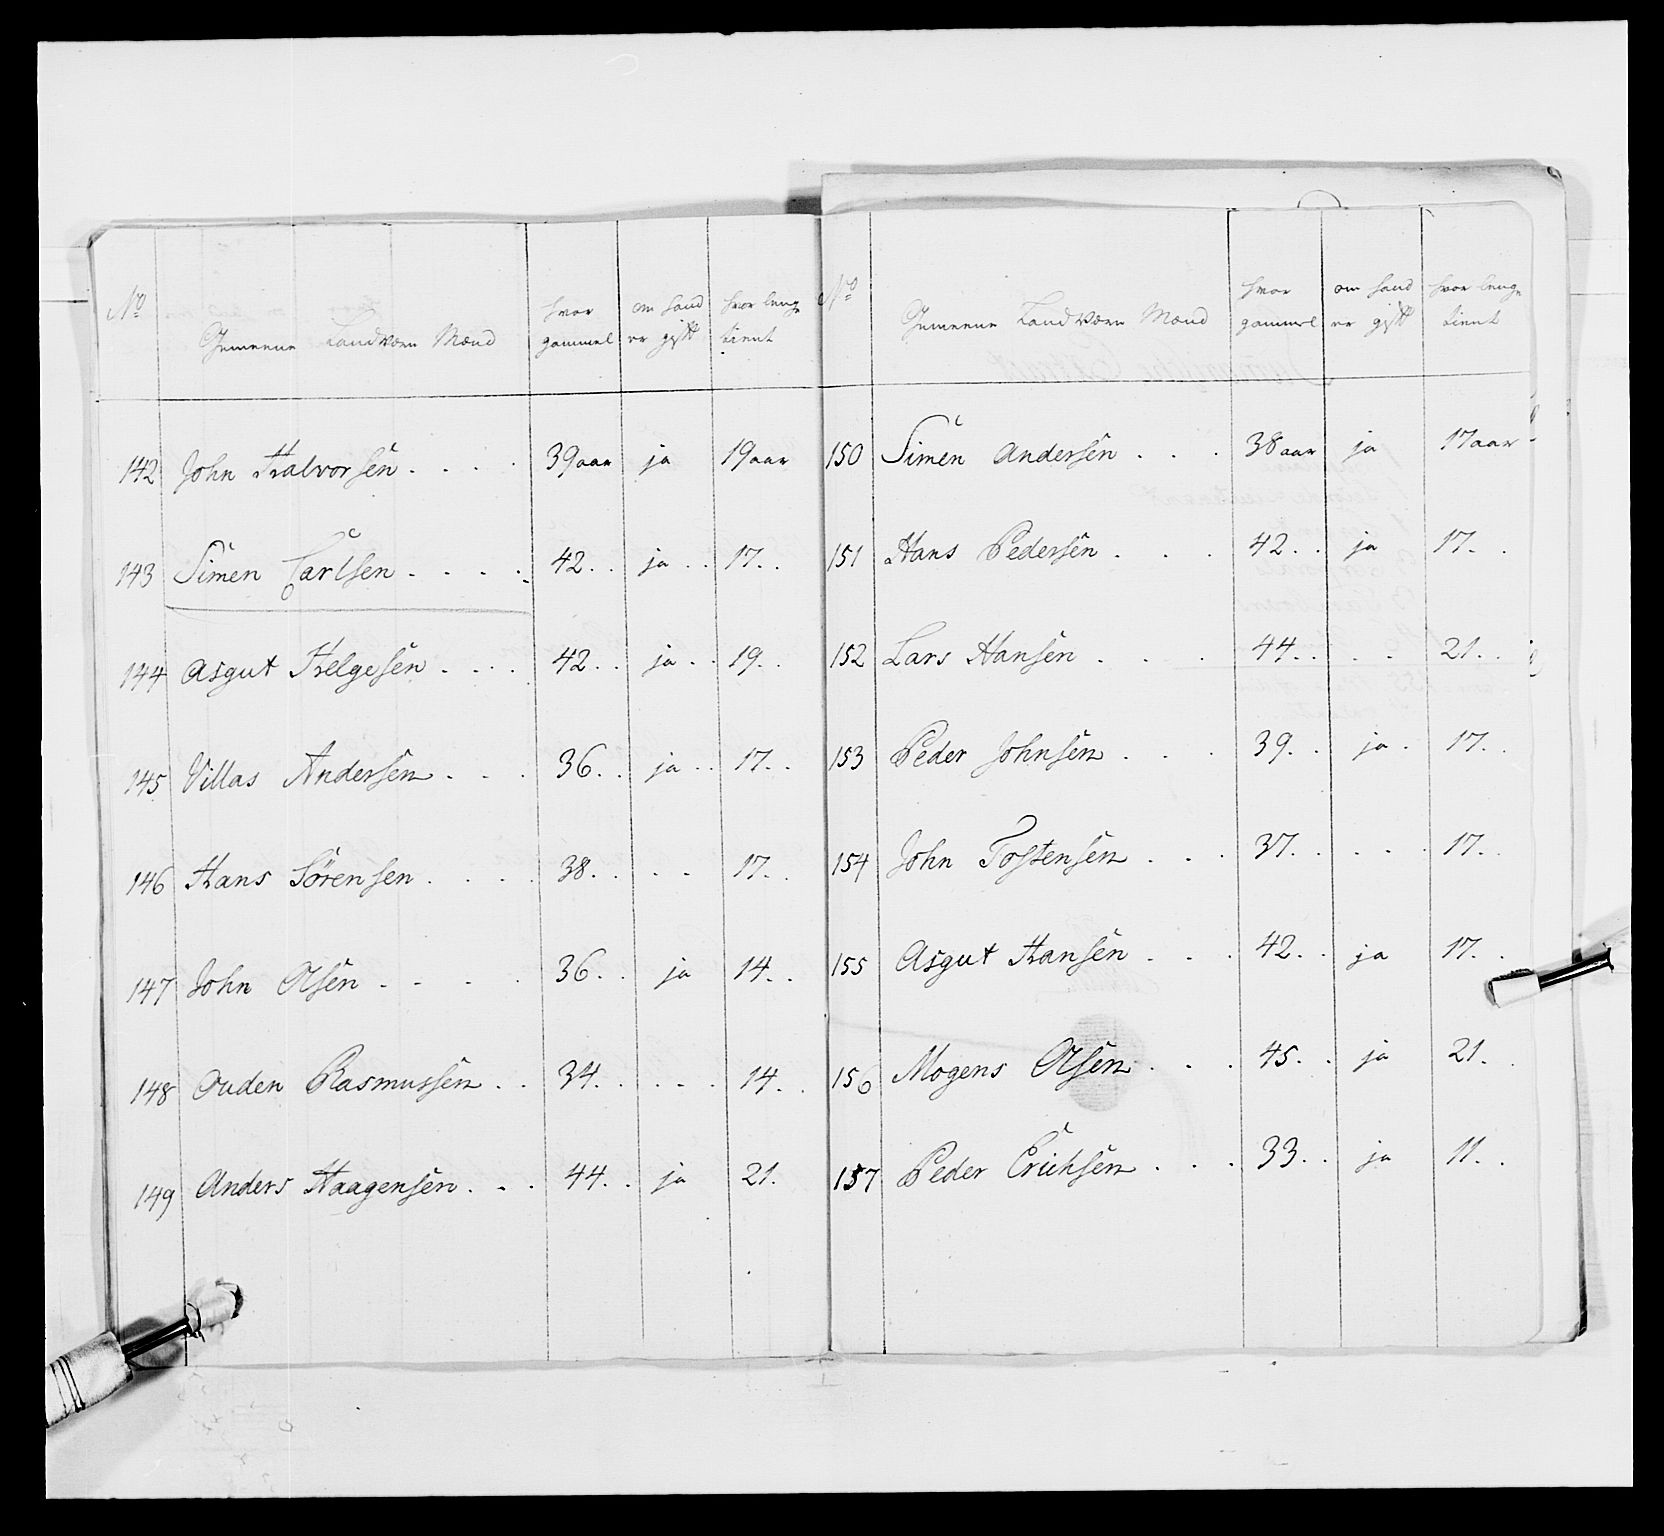 No Gemeene Landværn Mænd hvor gammel om hand er gift hvor lenge tient
142 John Halvorsen . . . . 39 aar ja 19 aar
143 Simen Carlsen . . . . 42 . . ja . . 17 . .
144 Asgut Helgesen . . . . 42 . . ja . . 19 . .
145 Villas Andersen . . . 36 . . ja . . 17 . .
146 Hans Sörensen . . . . 38 . . . . 17 . .
147 John Olsen . . . . 36 . . ja 14 . .
148 Ouden Rasmussen . . 34 . . . . . 14 . .
149 Anders Haagensen . . . 44 . . ja 21 .
No Gemeene Landværn Mænd hvor gammel om hand er gift hvor lenge tient
150 Simen Andersen . . . 38 aar ja 17 aar
151 Hans Pedersen . . . 42 . . ja 17 . .
152 Lars Hansen . . . 44 . . . . 21 . .
153 Peder Johnsen . . . 39 . . ja . 17 . .
154 John Tostensen . . . 37 . . . . . 17 . .
155 Asgut Hansen . . . 42 . . ja 17 . .
156 Mogens Olsen . . . 45 . . ja 21 . .
157 Peder Erichsen . . . 33 . . ja 11 . .